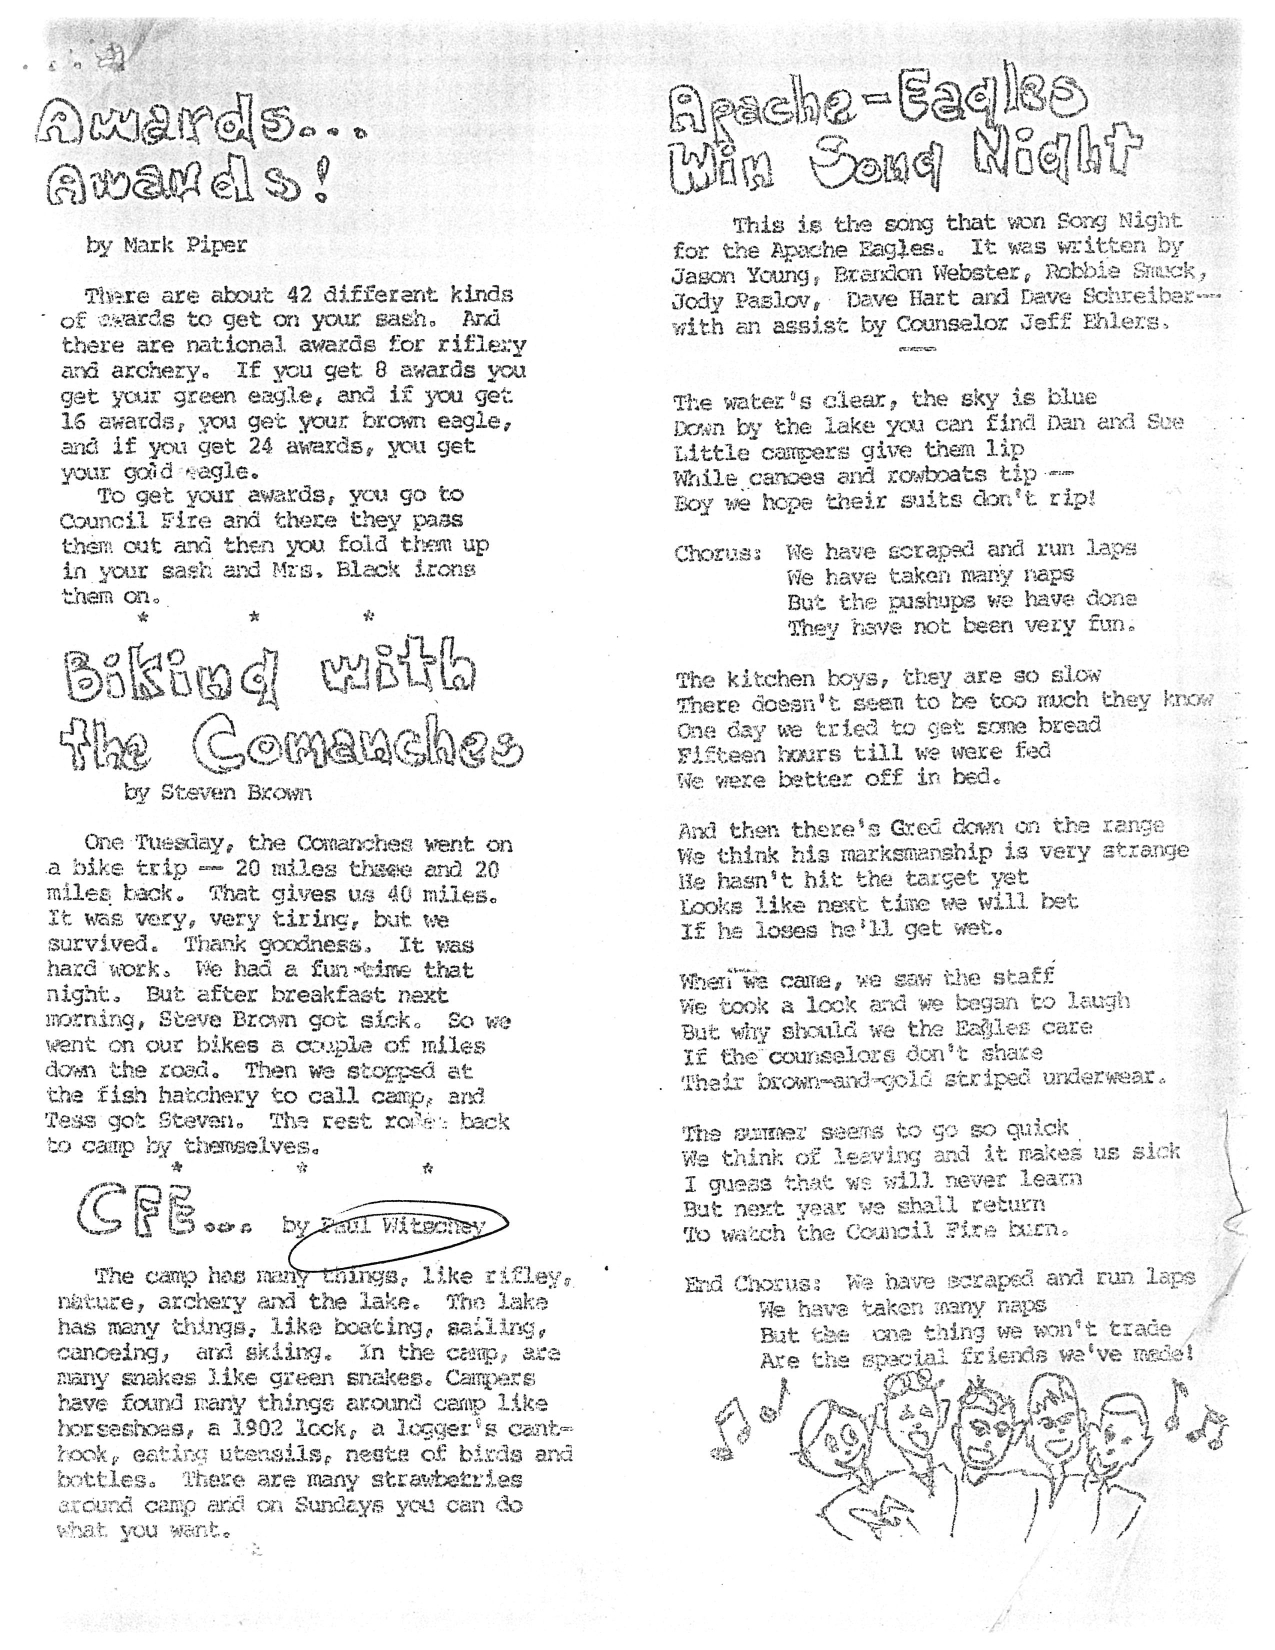 Awards...
Awards!
by Mark Piper
There are about 42 different kinds
of awards to get on your sash. And
there are national awards for riflery
and archery. If you get 8 awards you
get your green eagle, and if you get
16 awards, you get your brown eagle,
and if you get 24 awards, you get
your gold eagle.
To get your awards, you go to
Council Fire and there they pass
them out and then you fold them up
in your sash and Mrs. Black irons
them on.
* * *
Biking with
the Comanches
by Steven Brown
One Tuesday, the Comanches went on
a bike trip -- 20 miles there and 20
miles back. That gives us 40 miles.
It was very, very tiring, but we
survived. Thank goodness. It was
hard work. We had a fun time that
night. But after breakfast next
morning, Steve Brown got sick. So we
went on our bikes a couple of miles
down the road. Then we stopped at
the fish hatchery to call camp, and
Tess got Steven. The rest rode back
to camp by themselves.
* * *
CFE... by Paul Witschey
The camp has many things, like rifley,
nature, archery and the lake. The lake
has many things, like boating, sailing,
canoeing, and skiing. In the camp, are
many snakes like green snakes. Campers
have found many things around camp like
horseshoes, a 1902 lock, a logger's cant-
hook, eating utensils, nests of birds and
bottles. There are many strawberries
around camp and on Sundays you can do
what you want.
Apache-Eagles
Win Song Night
This is the song that won Song Night
for the Apache Eagles. It was written by
Jason Young, Brandon Webster, Robbie Smuck,
Jody Paslov, Dave Hart and Dave Schreiber--
with an assist by Counselor Jeff Ehlers.
The water's clear, the sky is blue
Down by the lake you can find Dan and Sue
Little campers give them lip
While canoes and rowboats tip --
Boy we hope their suits don't rip!
Chorus: We have scraped and run laps
We have taken many naps
But the pushups we have done
They have not been very fun.
The kitchen boys, they are so slow
There doesn't seem to be too much they know
One day we tried to get some bread
Fifteen hours till we were fed
We were better off in bed.
And then there's Gred down on the range
We think his marksmanship is very strange
He hasn't hit the target yet
Looks like next time we will bet
If he loses he'll get wet.
When we came, we saw the staff
We took a look and we began to laugh
But why should we the Eagles care
If the counselors don't share
Their brown-and-gold striped underwear.
The summer seems to go so quick
We think of leaving and it makes us sick
I guess that we will never learn
But next year we shall return
To watch the Council Fire burn.
End Chorus: We have scraped and run laps
We have taken many naps
But the one thing we won't trade
Are the special friends we've made!